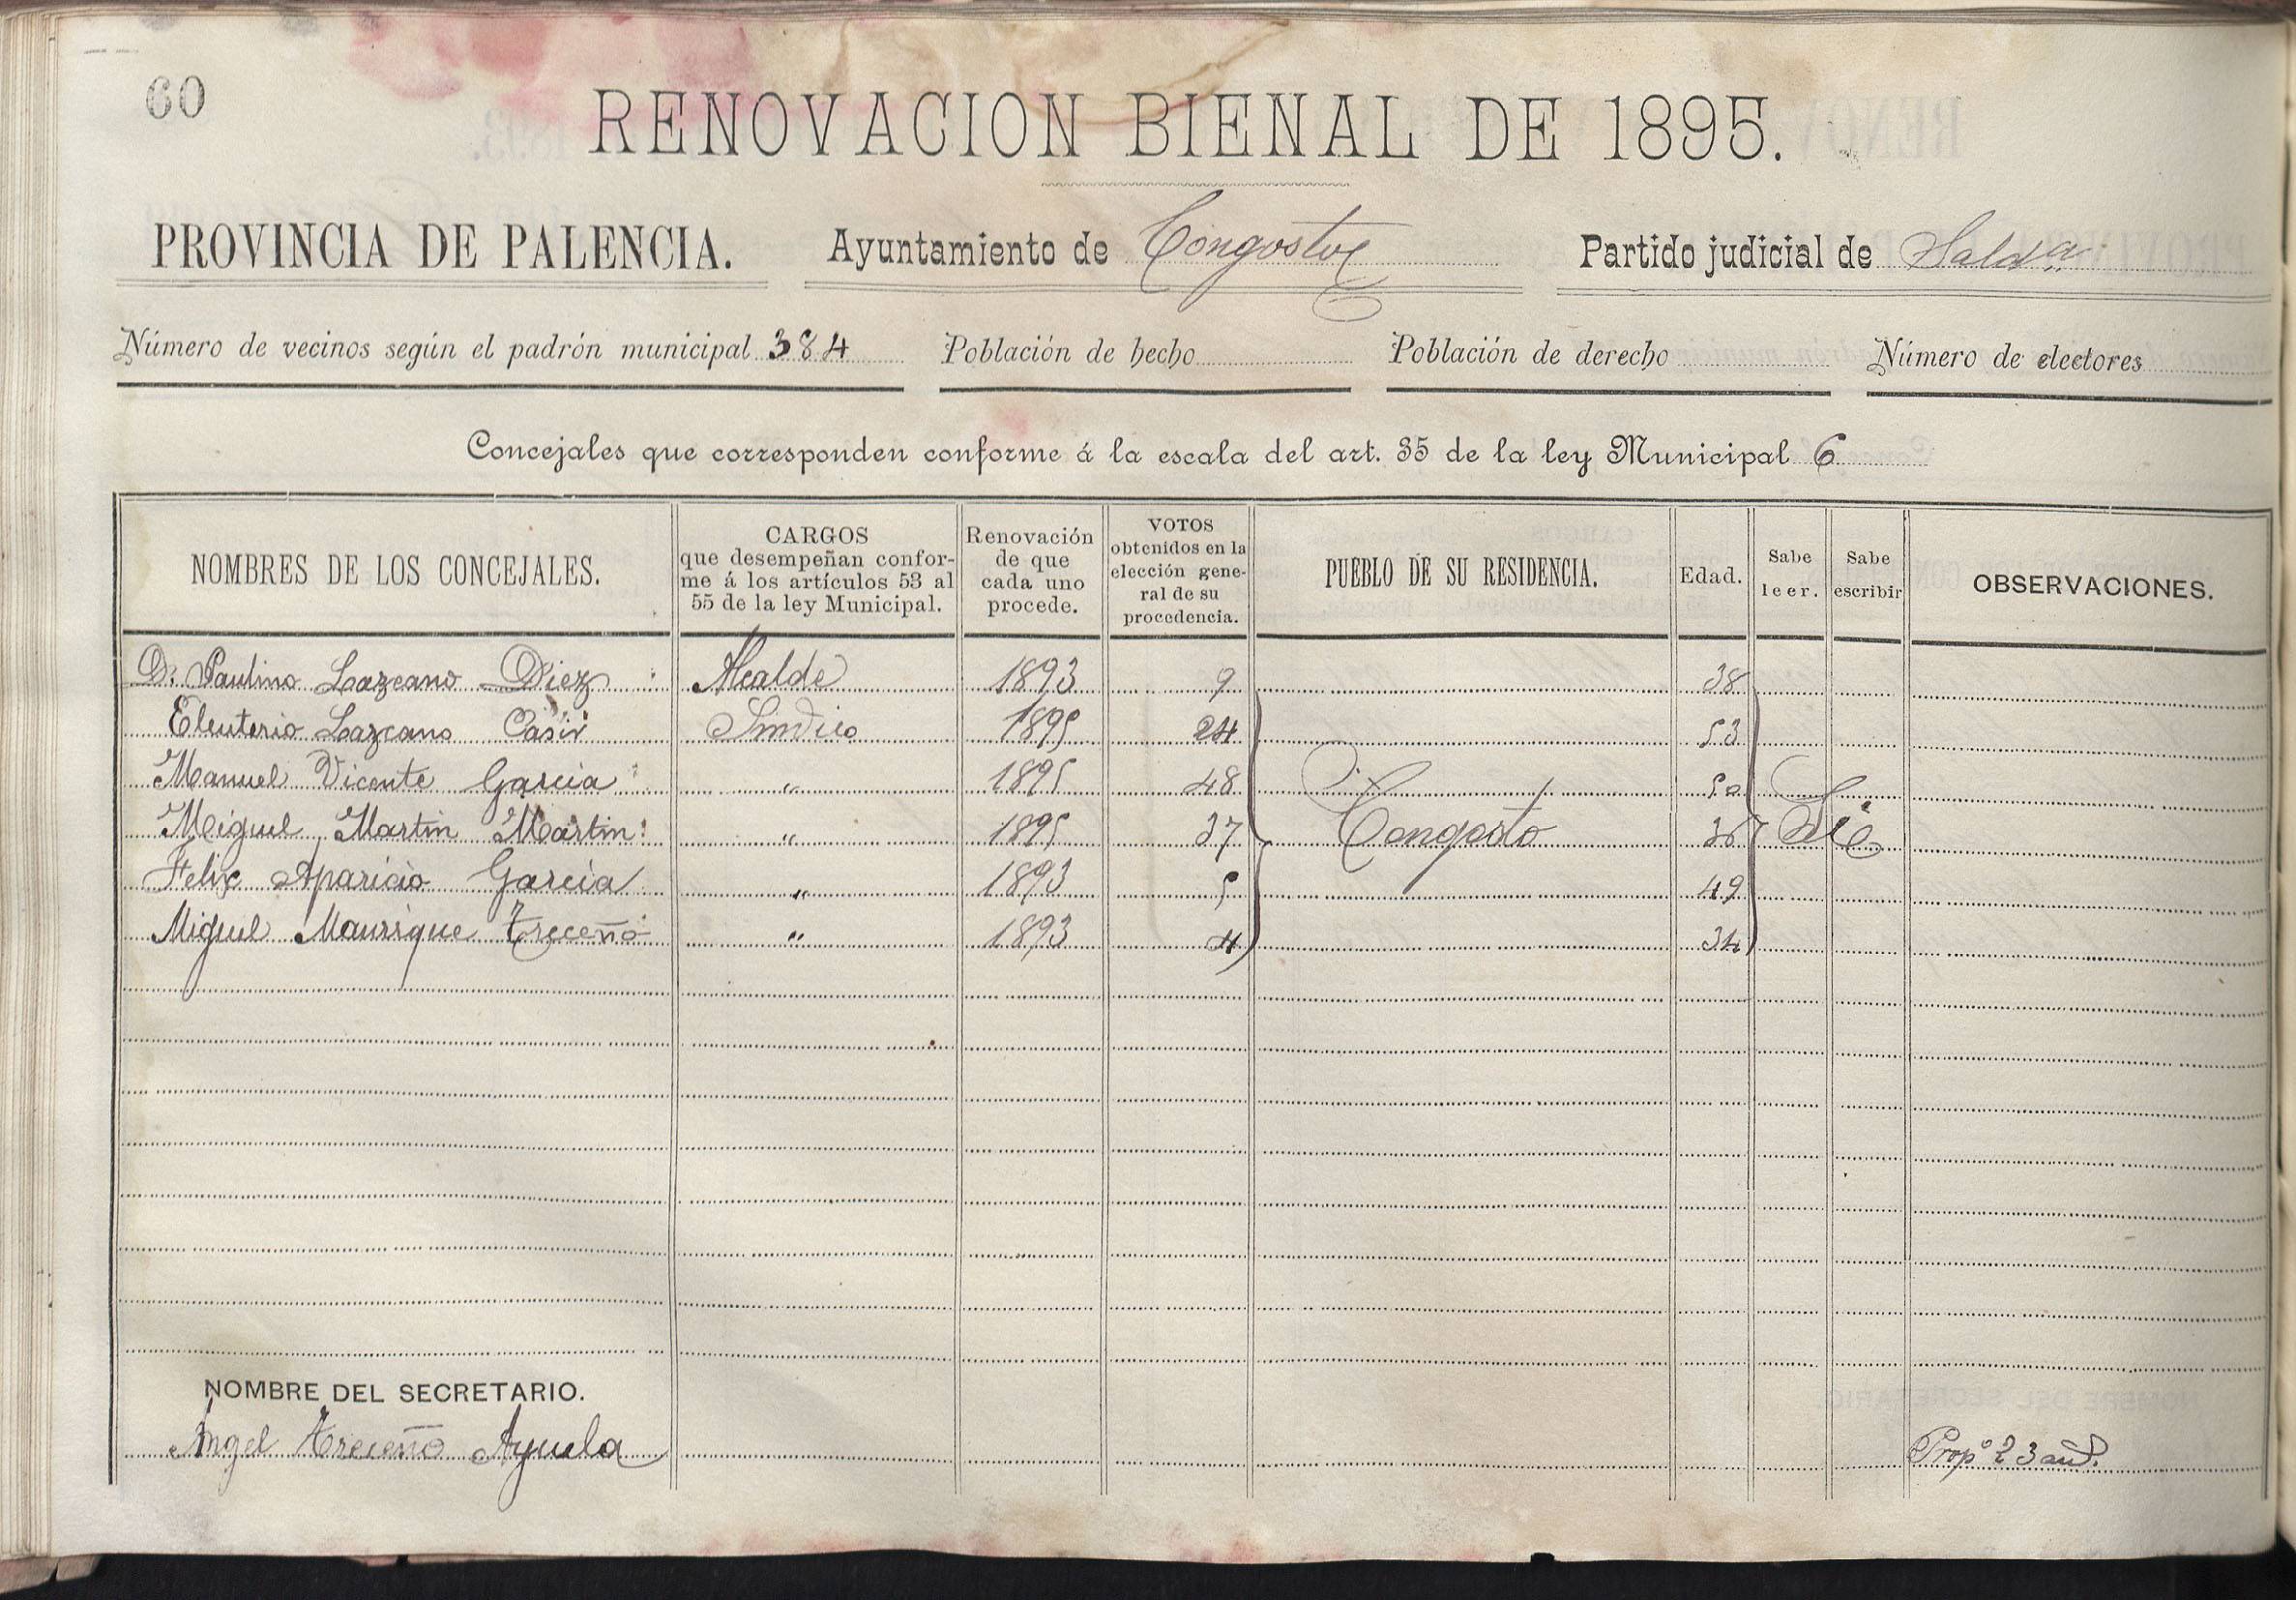 60
RENOVACION BIENAL DE 1895.
PROVINCIA DE PALENCIA. Ayuntamiento de Congosto Partido judicial de Saldª
Número de vecinos según el padrón municipal 384 Población de hecho Población de derecho Número de electores
Concejales que corresponden conforme á la escala del art. 35 de la ley Municipal 6
NOMBRES DE LOS CONCEJALES.
CARGOS
que desempeñan confor-
me á los artículos 53 al
55 de la ley Municipal.
Renovación
de que
cada uno
procede.
VOTOS
obtenidos en la
elección gene-
ral de su
procedencia.
PUEBLO DE SU RESIDENCIA.
Edad.
Sabe
leer.
Sabe
escribir
OBSERVACIONES.
D. Paulino Lazcano Diez Alcalde 1893 9 38
Eleuterio Lazcano Sindico 1895 24 53
Manuel Vicente Garcia " 1895 48 50
Miguel Martin Martin " 1895 37 Congosto 36 Si
Felix Aparicio Garcia " 1893 5 49
Miguel Manrique Treceño " 1893 4 34
NOMBRE DEL SECRETARIO.
Angel Treceño Ayuela Propº 23